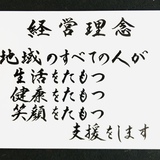 経営理念
地域のすべての人が
生活をたもつ
健康をたもつ
笑顔をたもつ
支援をします